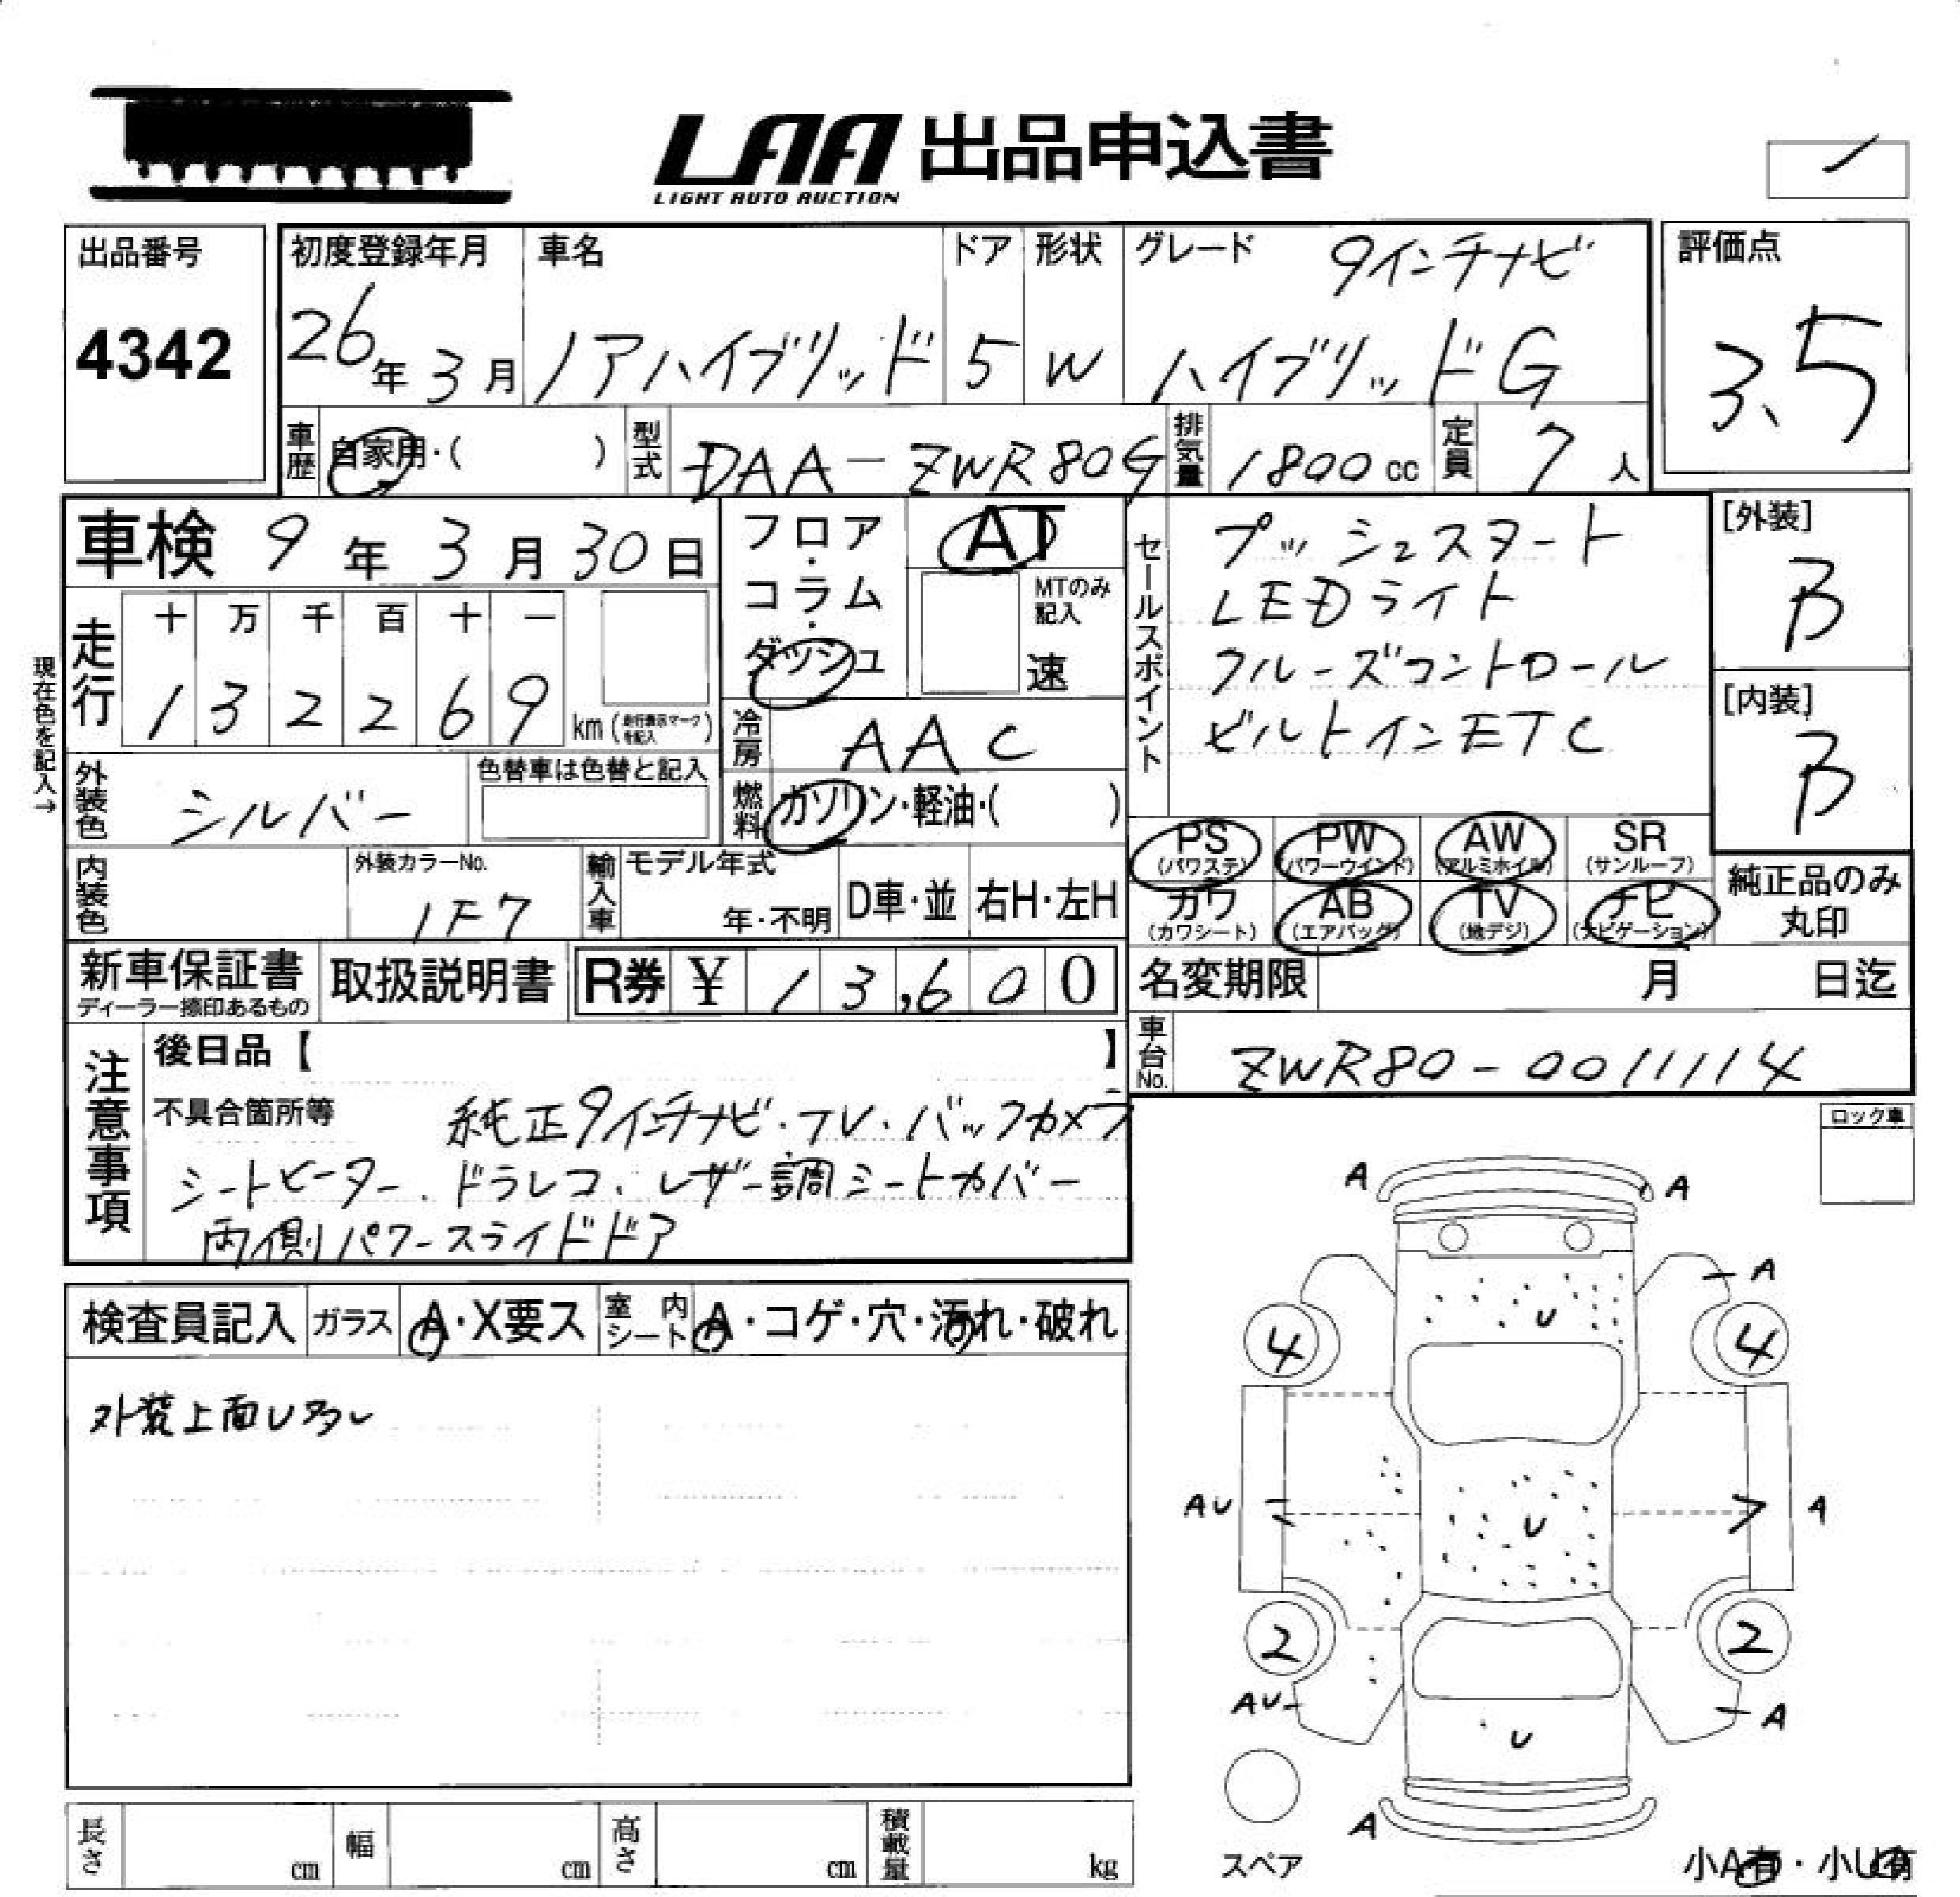 LAA 出品申込書
LIGHT AUTO AUCTION
出品番号
4342
初度登録年月
26年3月
車名
ノアハイブリッド
ドア
5
形状
W
グレード
9インチナビ
ハイブリッドG
評価点
3.5
車歴
自家用・( )
型式
DAA-ZWR80G
排気量
1800cc
定員
7人
車検 9年3月30日
フロア・コラム・ダッシュ
AT
MTのみ記入
速
セールスポイント
プッシュスタート
LEDライト
クルーズコントロール
ビルトインETC
[外装]
B
[内装]
B
現在色を記入→
走行
十 万 千 百 十 一
1 3 2 2 6 9 km (走行表示マークを記入)
冷房
AAC
外装色
シルバー
色替車は色替と記入
燃料
ガソリン・軽油・( )
PS (パワステ)
PW (パワーウインド)
AW (アルミホイル)
SR (サンルーフ)
カワ (カワシート)
AB (エアバッグ)
TV (地デジ)
ナビ (ナビゲーション)
純正品のみ
丸印
内装色
外装カラーNo.
1F7
輸入車
モデル年式
年・不明
D車・並
右H・左H
新車保証書
ディーラー捺印あるもの
取扱説明書
R券 ¥ 13,600
名変期限 月 日迄
車台No.
ZWR80-0011114
注意事項
後日品【 】
不具合箇所等
純正9インチナビ・TV・バックカメラ
シートヒーター、ドラレコ、レザー調シートカバー
両側パワースライドドア
ロック車
検査員記入
ガラス
A・X要ス
室内シート
A・コゲ・穴・汚れ・破れ
外装上面U多し
A A
A
U
4 4
AU U A
2 2
AU A
U
A
スペア
小A有・小U有
長さ cm
幅 cm
高さ cm
積載量 kg